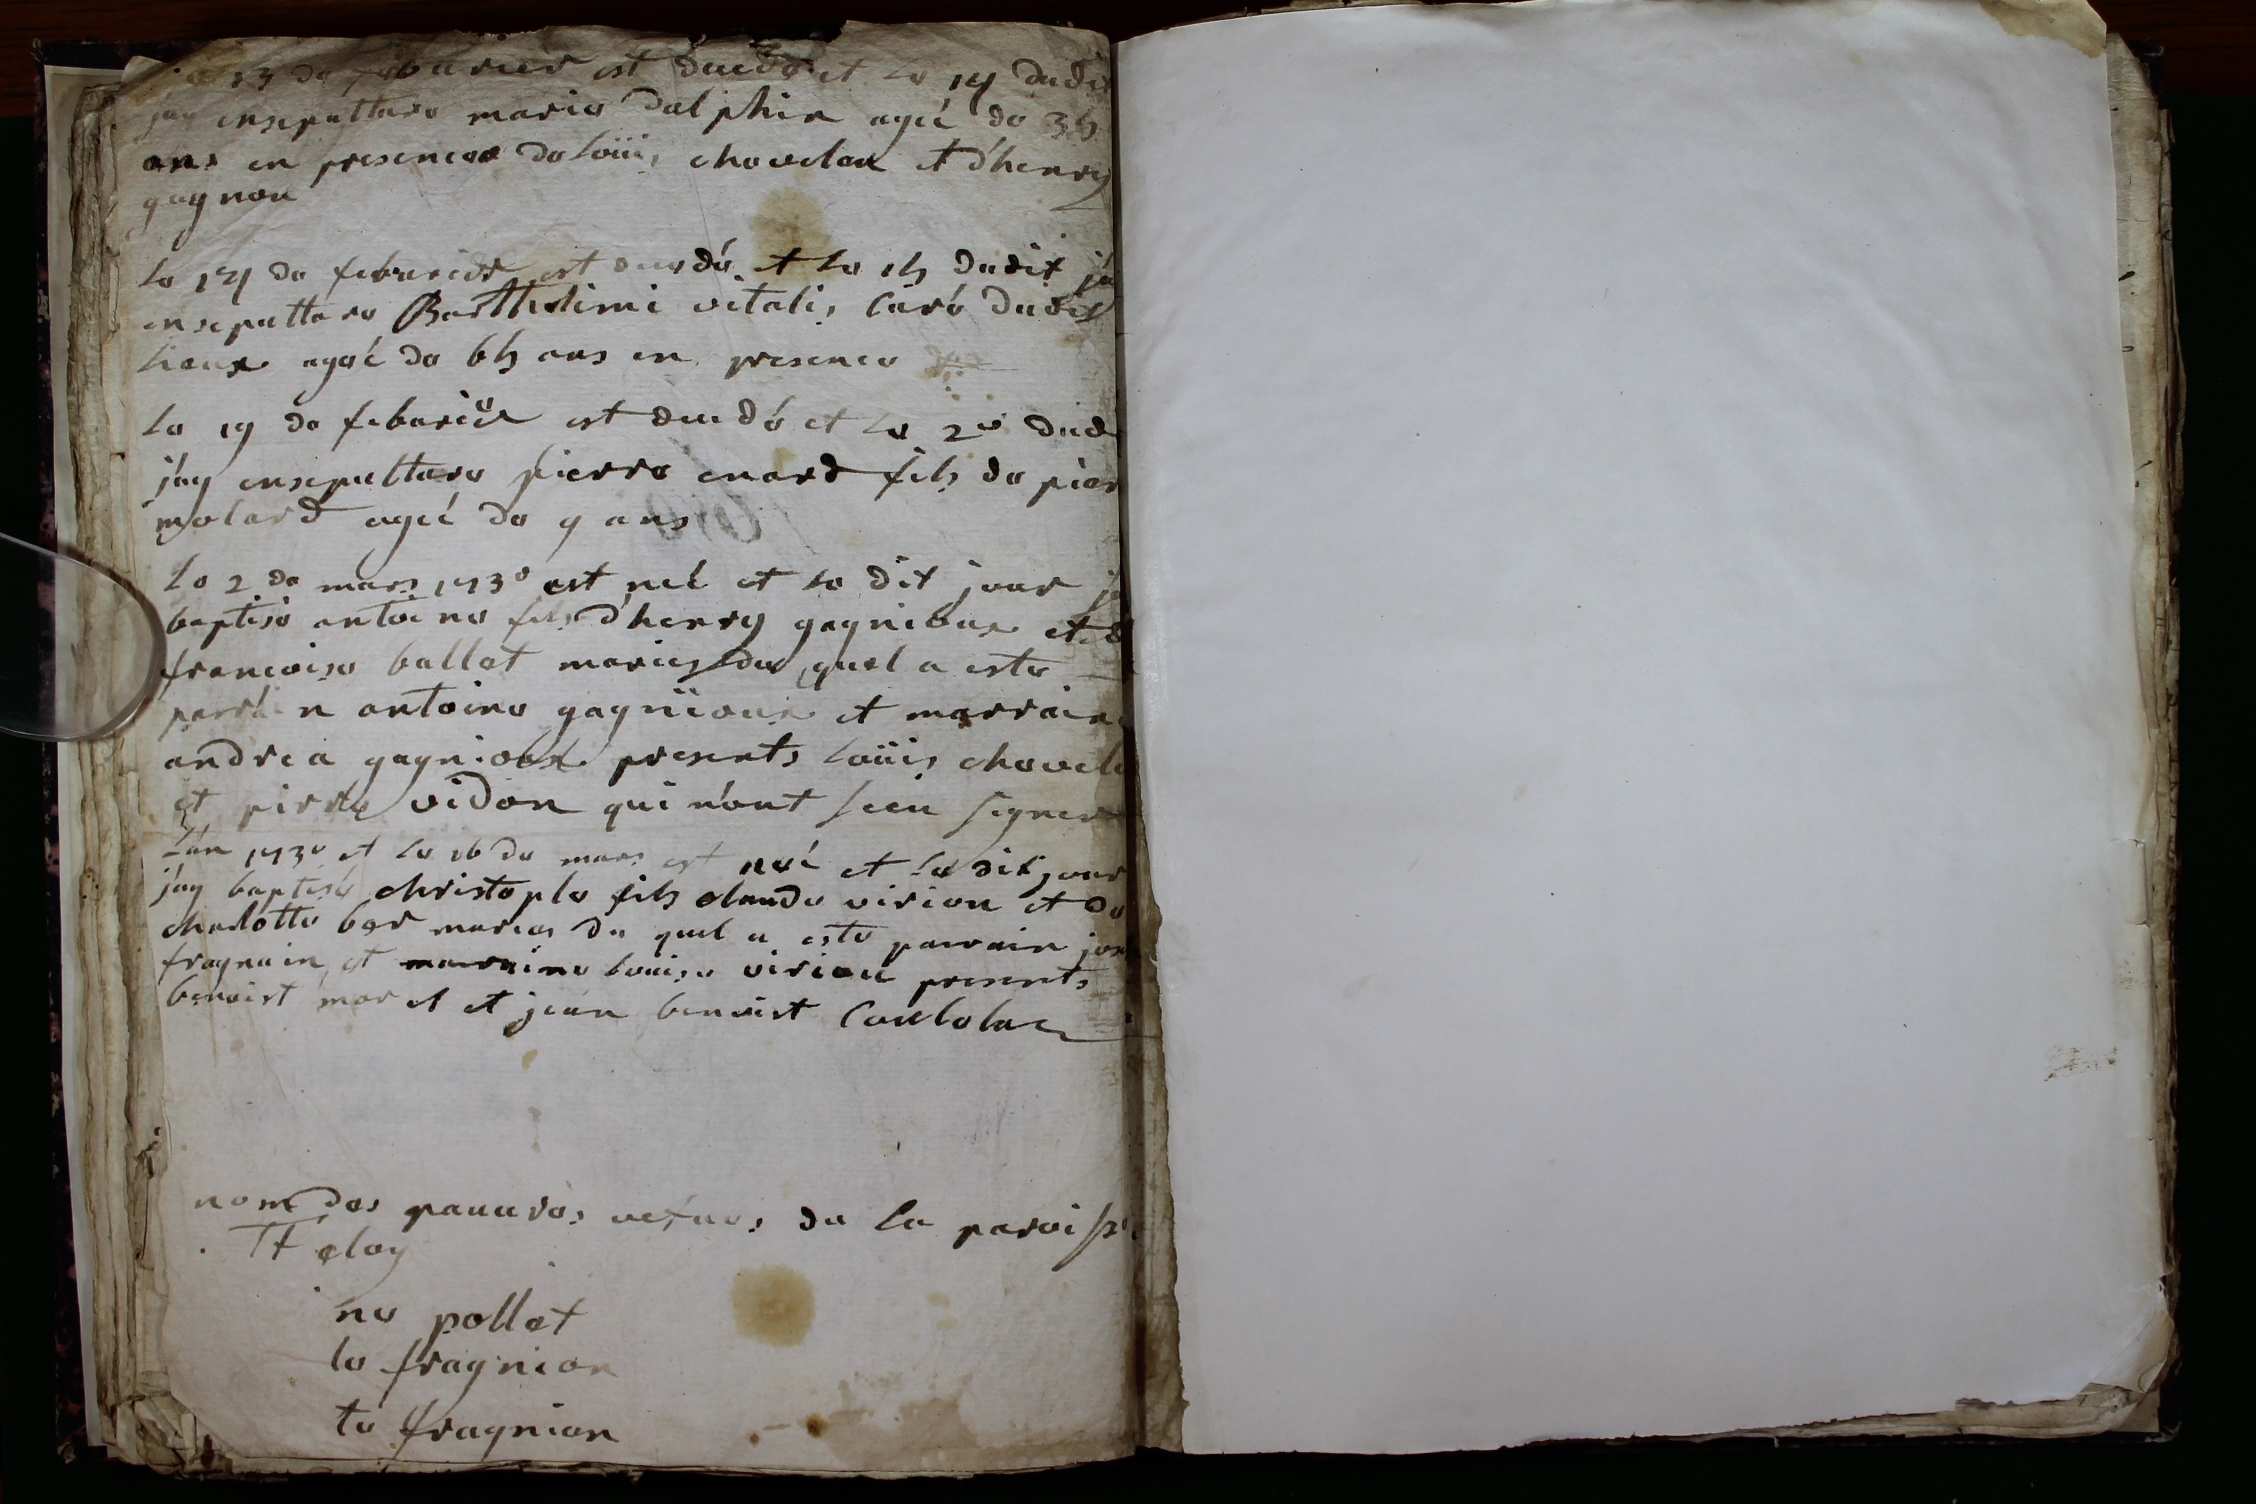 13 de febvrier est decedé et le 14 dudit
jay ensepulture marie dalphin ageé de 35
ans en presence de loüis chavelan et d'henry
gagnon
le 14 de febvrier est decedé et le 15 dudit
ensepulture Barthelimi vitalis Curé dudit
lieux ageé de 65 ans en presence
le 19 de febvrier est decedé et le 20 dud
jay ensepulture pierre enard fils de pier
molard ageé de 9 ans
le 2 de mars 1730 est neé et le dit jour
baptisé antoine fils d'henry gagnioux et d
francoise ballet maries du quel a este
parrain antoine gagnioux et marraine
andrea gagnioux presents loüis chavel
et pirre vidon qui n'ont sceu signer
L'an 1730 et le 16 de mars est neé et le dit jour
jay baptisé christople fils claude virion et de
charlotte bor maries du quel a este parrain
fragnain et marraine louise virion presents
benoist morel et jean benoist
nom des pauures de la paroisse
St eloy
ne pollet
le fragnion
te fragnion